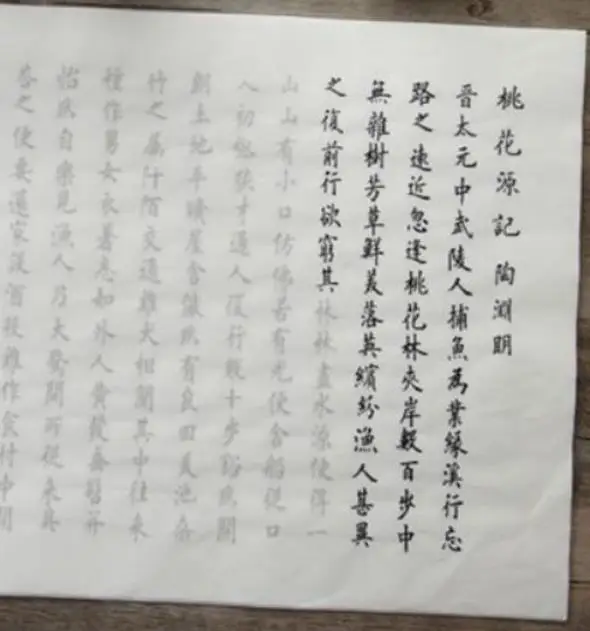 桃花源記 陶淵明
晉太元中武陵人捕魚為業緣溪行忘
路之遠近忽逢桃花林夾岸數百步中
無雜樹芳草鮮美落英繽紛漁人甚異
之復前行欲窮其林林盡水源便得一
山山有小口仿佛若有光便舍船從口
入初極狹才通人復行數十步豁然開
朗土地平曠屋舍儼然有良田美池桑
竹之屬阡陌交通雞犬相聞其中往來
種作男女衣著悉如外人黃髮垂髫并
怡然自樂見漁人乃大驚問所從來具
答之便要還家設酒殺雞作食村中聞